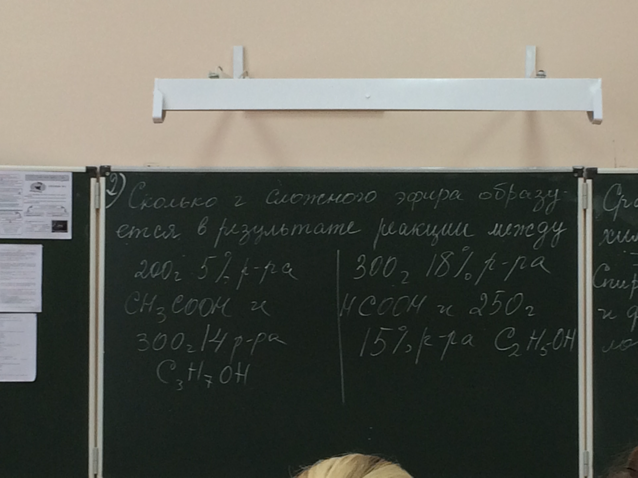 2) Сколько г сложного эфира образу-
ется в результате реакции между
200г 5% р-ра
CH₃COOH и
300г 14 р-ра
C₃H₇OH
300г 18% р-ра
HCOOH и 250г
15% р-ра C₂H₅OH